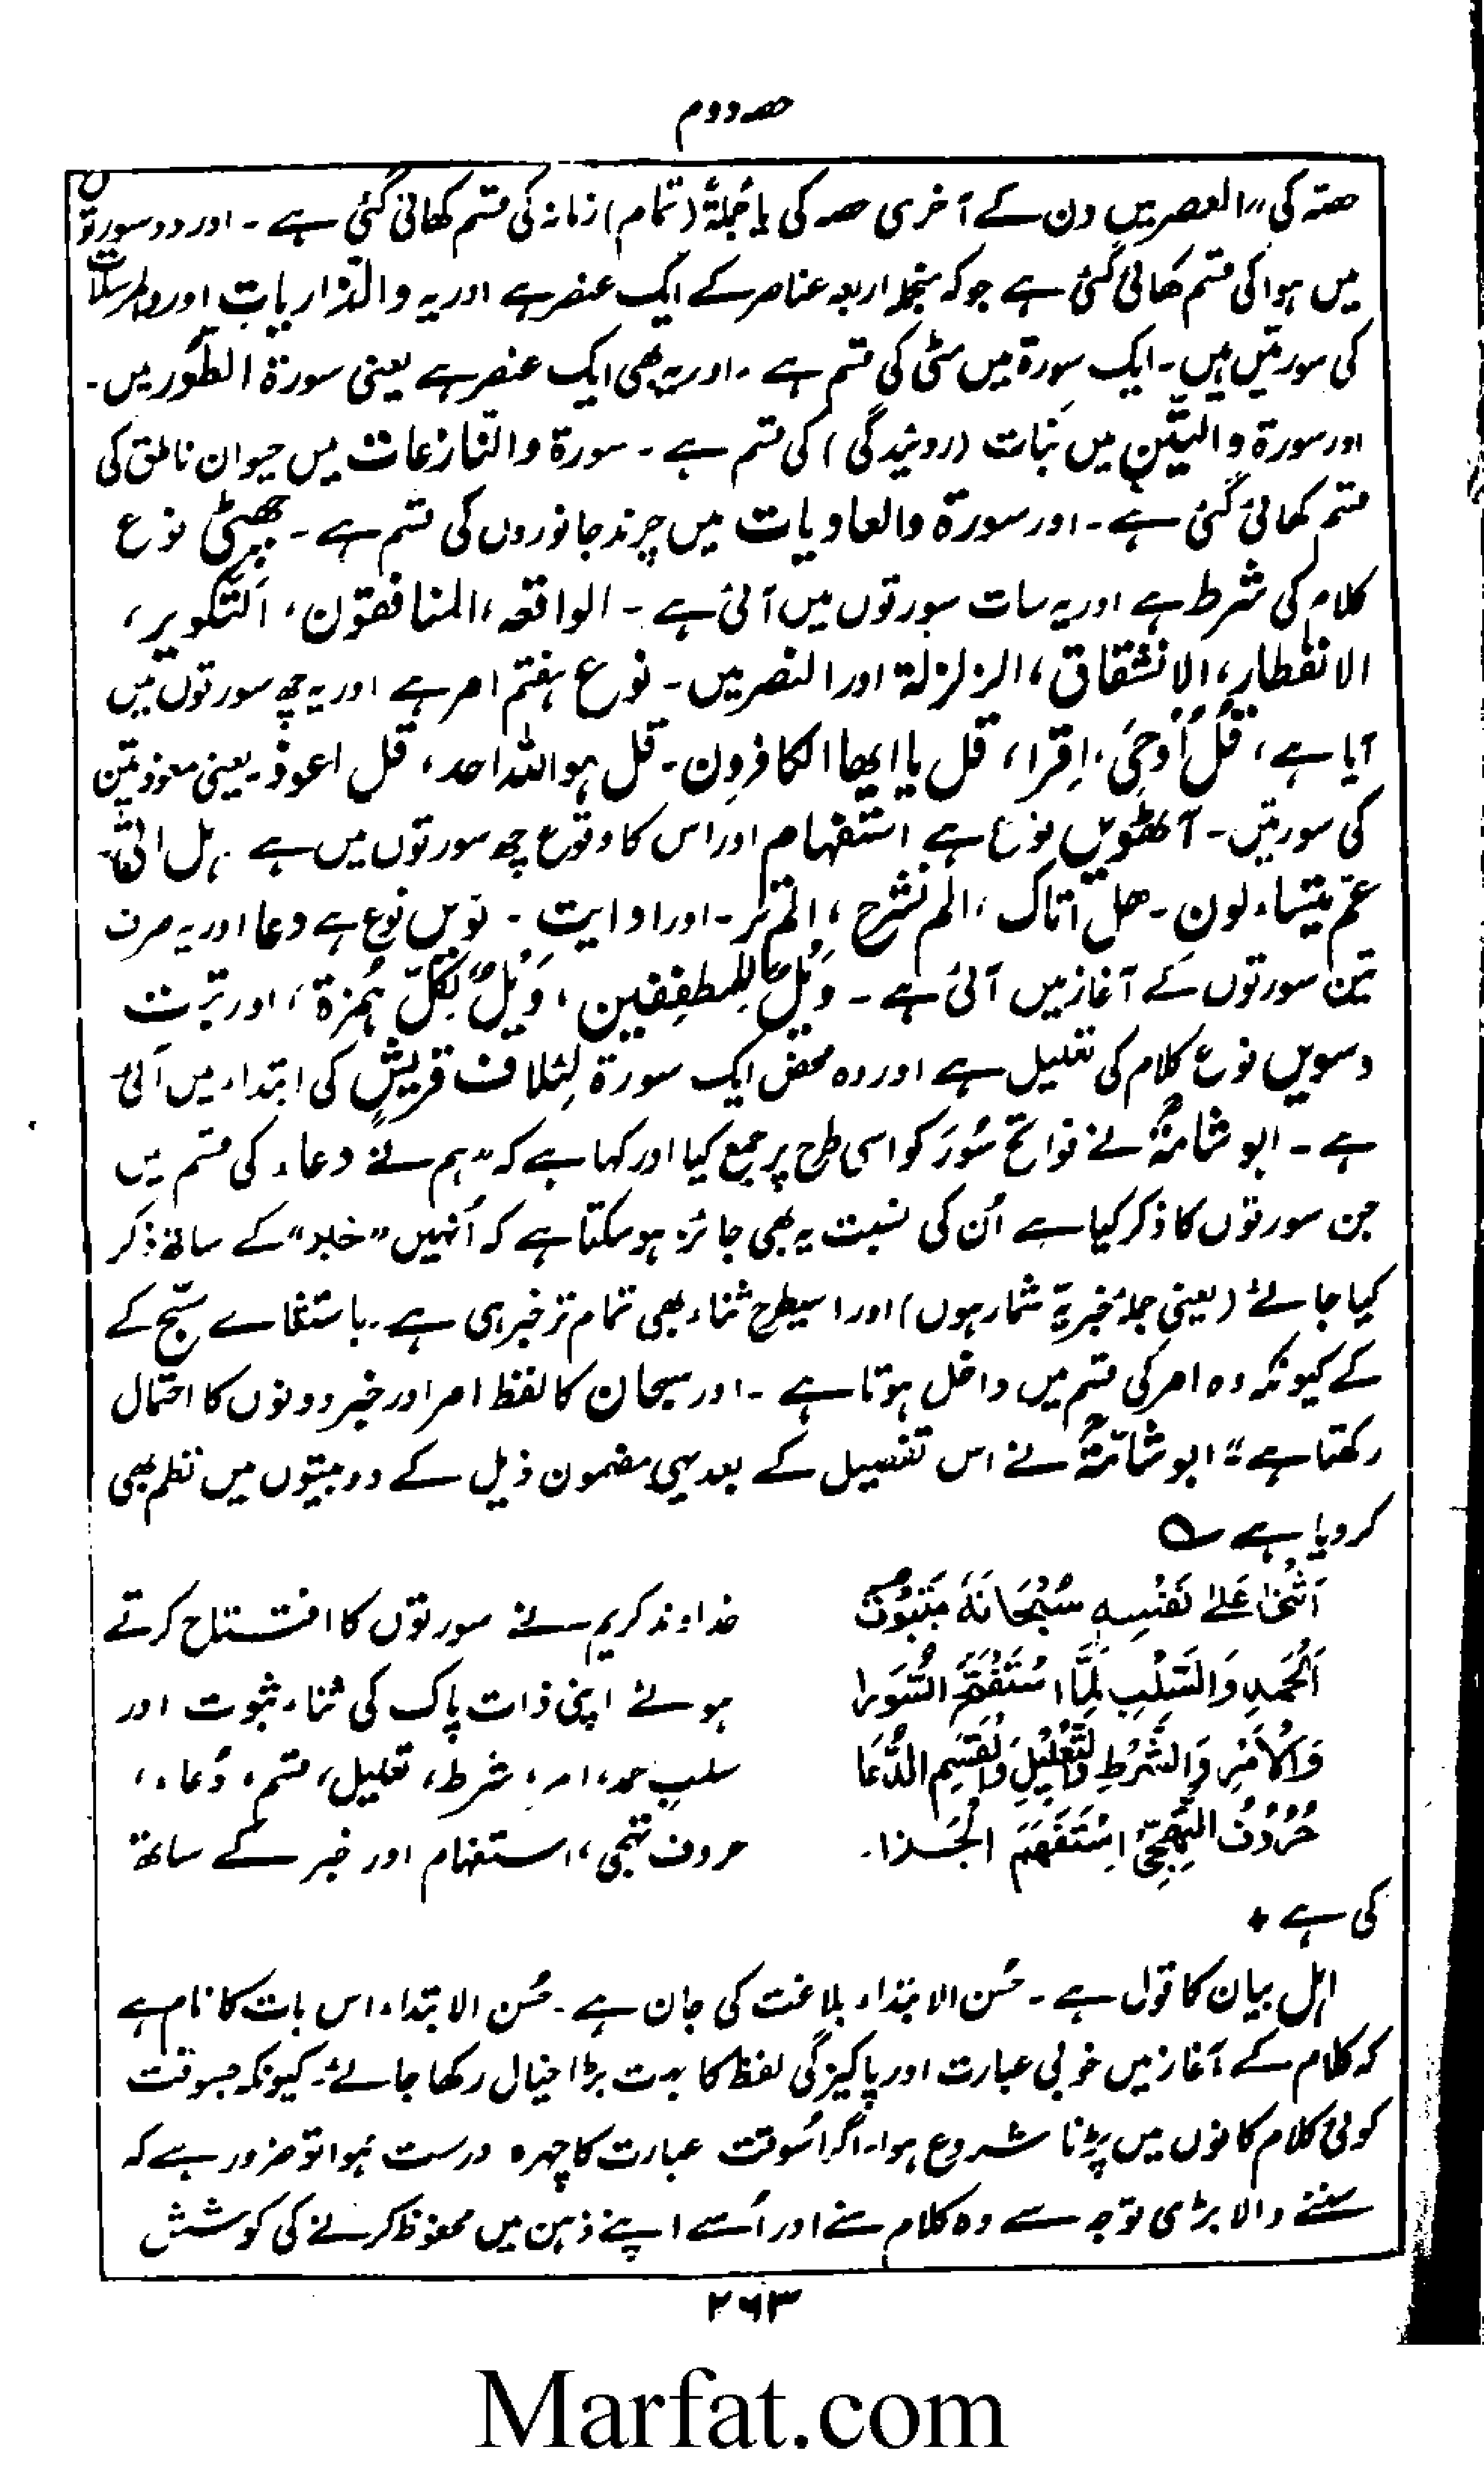 حصہ دوم
حصّہ کی "العصر میں دن کے آخری حصہ کی یا جُملۃً (تمام) زمانہ کی قسم کھائی گئی ہے ۔ اور دو سورتوں
میں ہوا کی قسم کھائی گئی ہے جو کہ منجملہ اربعہ عناصر کے ایک عنصر ہے اور یہ والذّاریات اور والمرسلات
کی سورتیں ہیں ۔ ایک سورۃ میں مٹی کی قسم ہے ۔ اور یہ بھی ایک عنصر ہے یعنی سورۃ الطُّور میں ۔
اور سورۃ والتّین میں نَبات (روئیدگی) کی قسم ہے ۔ سورۃ والنازعات میں حیوان ناطق کی
قسم کھائی گئی ہے ۔ اور سورۃ والعادیات میں چرند جانوروں کی قسم ہے ۔ چھٹی نوع
کلام کی شرط ہے اور یہ سات سورتوں میں آئی ہے ۔ الواقعہ، المنافقون، اَلتّکویر،
الانفطار، الانشقاق، الزلزلۃ اور النصر میں ۔ نوع ہفتم امر ہے اور یہ چھ سورتوں میں
آیا ہے، قُل اُوحِیَ، اِقرا، قل یا ایھا الکافرون ۔ قل ہو اللہ احد، قل اعوذ ۔ یعنی معوذتین
کی سورتیں ۔ آٹھویں نوع ہے استفہام اور اس کا وقوع چھ سورتوں میں ہے ہل اتیٰ
عَمَّ یتساءلون ۔ ھل اتاک، الم نشرح، الم تر ۔ اور ارایت ۔ نویں نوع ہے دعا اور یہ صرف
تین سورتوں کے آغاز میں آئی ہے ۔ وَیلٌ لِلمطفِفین، وَیلٌ لِکُلِّ ہُمزۃ، اور تبّت
دسویں نوع کلام کی تعلیل ہے اور وہ محض ایک سورۃ لِئلاف قریش کی ابتداء میں آئی
ہے ۔ ابو شامہؒ نے فواتح سُوَر کو اسی طرح پر جمع کیا اور کہا ہے کہ "ہم نے دعاء کی قسم میں
جن سورتوں کا ذکر کیا ہے اُن کی نسبت یہ بھی جائز ہو سکتا ہے کہ اُنہیں "خبر" کے ساتھ ذکر
کیا جائے (یعنی جملۂ خبریّہ شمار ہوں) اور اسیطرح ثناء بھی تمام تر خبر ہی ہے ۔ باستثنائے سبّح کے
کے کیونکہ وہ امر کی قسم میں داخل ہوتا ہے ۔ اور سبحان کا لفظ امر اور خبر دونوں کا احتمال
رکھتا ہے" ابو شامہؒ نے اس تفصیل کے بعد یہی مضمون ذیل کے دو بیتوں میں نظم بھی
کر دیا ہے
اَثْنیٰ عَلیٰ نَفْسِہٖ سُبْحَانَہٗ بِثُبُوْتِ
خداوند کریم نے سورتوں کا افتتاح کرتے
اَلْحَمدِ وَالسَّلْبِ لَمَّا اسْتَفْتَحَ السُّوَرا
ہوئے اپنی ذات پاک کی ثناء ثبوت اور
وَالْاَمْرِ وَالشَّرْطِ وَالتَّعْلِیْلِ وَالْقَسَمِ الدُّعَا
سلبِ حمد، امر، شرط، تعلیل، قسم، دُعاء،
حُرُوْفُ التَّھَجِّیْ اِسْتَفْھَمَ الْخَبَرَا۔
حروف تہجی، استفہام اور خبر کے ساتھ
کی ہے +
اہل بیان کا قول ہے ۔ حُسن الابتداء بلاغت کی جان ہے ۔ حُسن الابتداء اس بات کا نام ہے
کہ کلام کے آغاز میں خوبی عبارت اور پاکیزگی لفظ کا بہت بڑا خیال رکھا جائے ۔ کیونکہ جسوقت
کوئی کلام کانوں میں پڑنا شروع ہوا ۔ اگر اُسوقت عبارت کا چہرہ درست ہوا تو ضرور ہے کہ
سننے والا بڑی توجہ سے وہ کلام سنے اور اُسے اپنے ذہن میں محفوظ کرنے کی کوشش
۲۶۳
Marfat.com